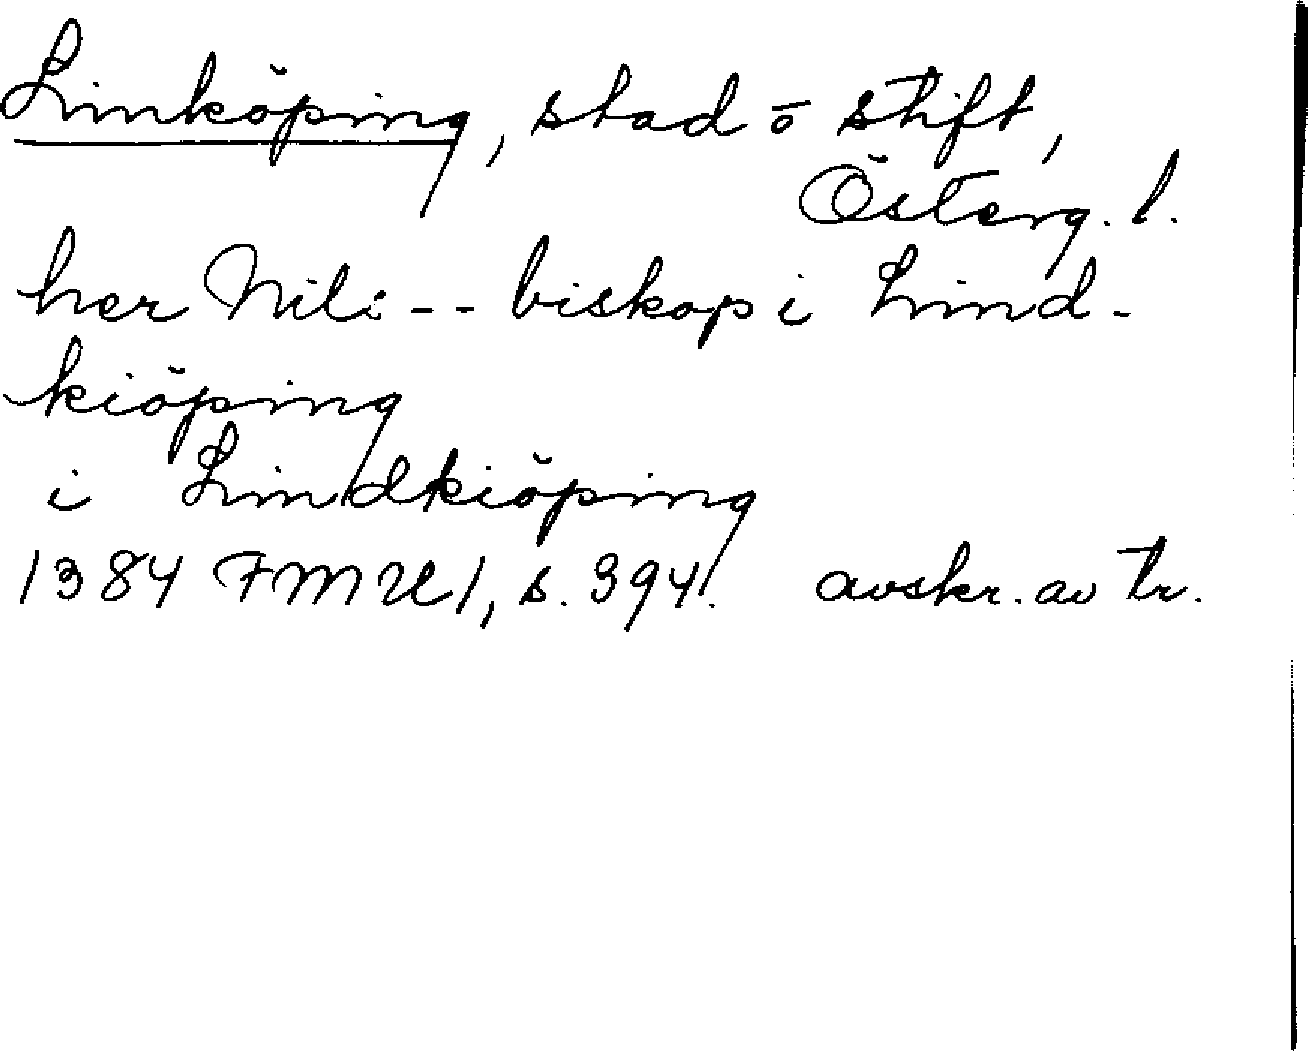 Linköping, stad ō stift,
Österg. l.
her Nils -- biskop i Lind-
kiöping
i Lindkiöping
1384 FMU 1, s. 394. avskr. av tr.